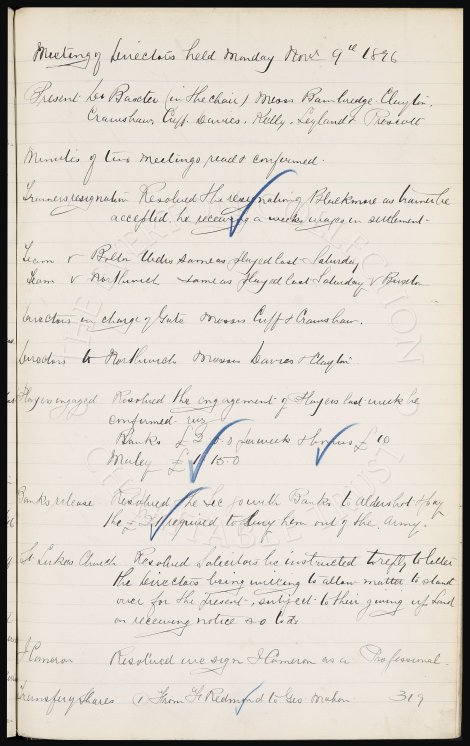 Meeting of Directors held Monday Novr 9th 1896
Present Dr Baxter (in the chair) Messrs Bainbridge. Clayton,
Crawshaw. Cuff. Davies. Kelly. Leyland & Prescott
Minutes of two meetings read & confirmed.
Trainers resignation Resolved the resignation of Blackmore as trainer be
accepted, he receiving a weeks wages in settlement.
Team v Bolton Wdrs same as played last Saturday
Team v Northwich same as played last Saturday v Burton
Directors in charge of Gate Messrs Cuff & Crawshaw.
Directors to Northwich Messrs Davies & Clayton.
Players engaged Resolved the engagement of players last week be
confirmed. viz
Banks £3.0.0 per week & bonus £10
Maley £1.15.0
Banks release Resolved the Sec go with Banks to Aldershot & pay
the £31 required to buy him out of the Army.
St Lukes Church Resolved Solicitors be instructed to reply to letter
the Directors being willing to allow matter to stand
over for the present, subject to their giving up land
on receiving notice so to do
J Cameron Resolved we sign J Cameron as a Professional.
Transfer of Shares (1) From Redmond to Geo. Mahon 319